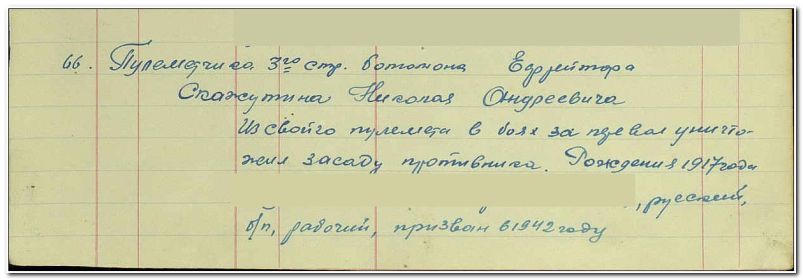 66. Пулеметчика 3го стр.ботомона Ефрейтора
Скажутина Николая Андреевича
Из свойго пулемета в боях за перевал уничто-
жил засаду противника. Рождения 1917 года
, русский,
б/п, рабочий, призван в 1942 году